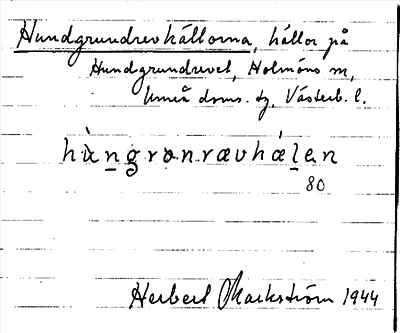 Hundgrundrevhällorna, hällor på
Hundgrundrevet, Holmöns sn,
Umeå doms. tg, Västerb. l.
hùngronrævhælen
80
Herbert Markström 1944